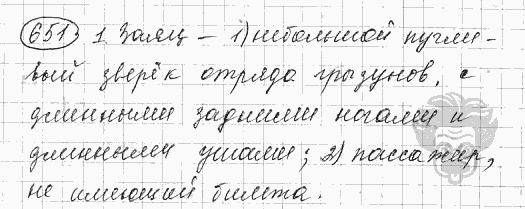 651. 1. Заяц – 1) небольшой пугли-
вый зверёк отряда грызунов, с
длинными задними ногами и
длинными ушами; 2) пассажир,
не имеющий билета.